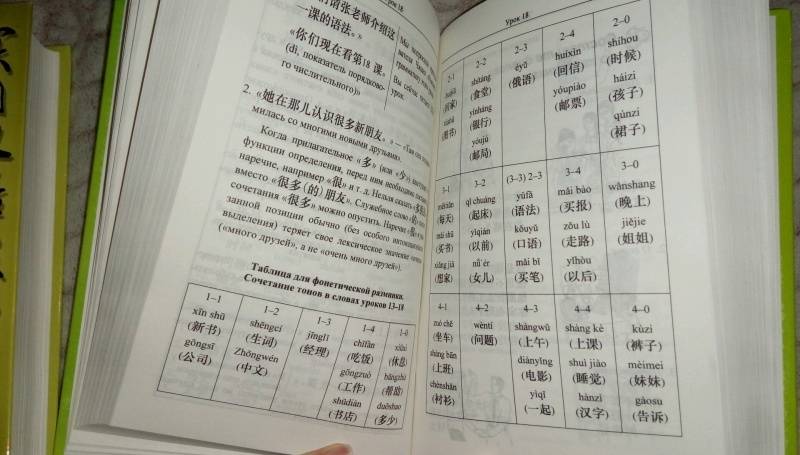 рок 18
们请张老师介绍这
一课的语法。»
«你们现在看第18 课。
(dì, показатель порядково-
го числительного)»
2. «她在那儿认识很多新朋友。» — «Там она
милась со многими новыми друзьями».
Когда прилагательное «多» (или «少»)
функции определения, перед ним необходимо
наречие, например «很» и т. д. Нельзя сказать
вместо «很多(的)朋友». Служебное слово
сочетания «很多» можно опустить. Наречие
занной позиции обычно (без особого
выделения) теряет свое лексическое значение
(«много друзей», а не «очень много друзей»).
Таблица для фонетической разминки.
Сочетание тонов в словах уроков 13–18
1–1 1–2 1–3 1–4 1–0
xīn shū shēngcí jīnglǐ chīfàn xiūxi
(新书) (生词) (经理) (吃饭) (休息)
gōngsī Zhōngwén gōngzuò bāngzhu
(公司) (中文) (工作) (帮助)
shūdiàn duōshao
(书店) (多少)
Урок 18
2–1 2–2 2–3 2–4 2–0
shítáng éyǔ huíxìn shíhou
(回家) (食堂) (俄语) (回信) (时候)
yínháng yóupiào háizi
(图书) (银行) (邮票) (孩子)
yóujú qúnzi
(邮局) (裙子)
3–1 3–2 (3–3) 2–3 3–4 3–0
měitiān qǐ chuáng yǔfǎ mǎi bào wǎnshang
(每天) (起床) (语法) (买报) (晚上)
mǎi shū yǐqián kǒuyǔ zǒu lù jiějie
(买书) (以前) (口语) (走路) (姐姐)
xiǎng jiā nǚ'ér mǎi bǐ yǐhòu
(想家) (女儿) (买笔) (以后)
4–1 4–2 4–3 4–4 4–0
zuò chē wèntí shàngwǔ shàng kè kùzi
(坐车) (问题) (上午) (上课) (裤子)
shàng bān diànyǐng shuì jiào mèimei
(上班) (电影) (睡觉) (妹妹)
chènshān yìqǐ hànzì gàosu
(衬衫) (一起) (汉字) (告诉)